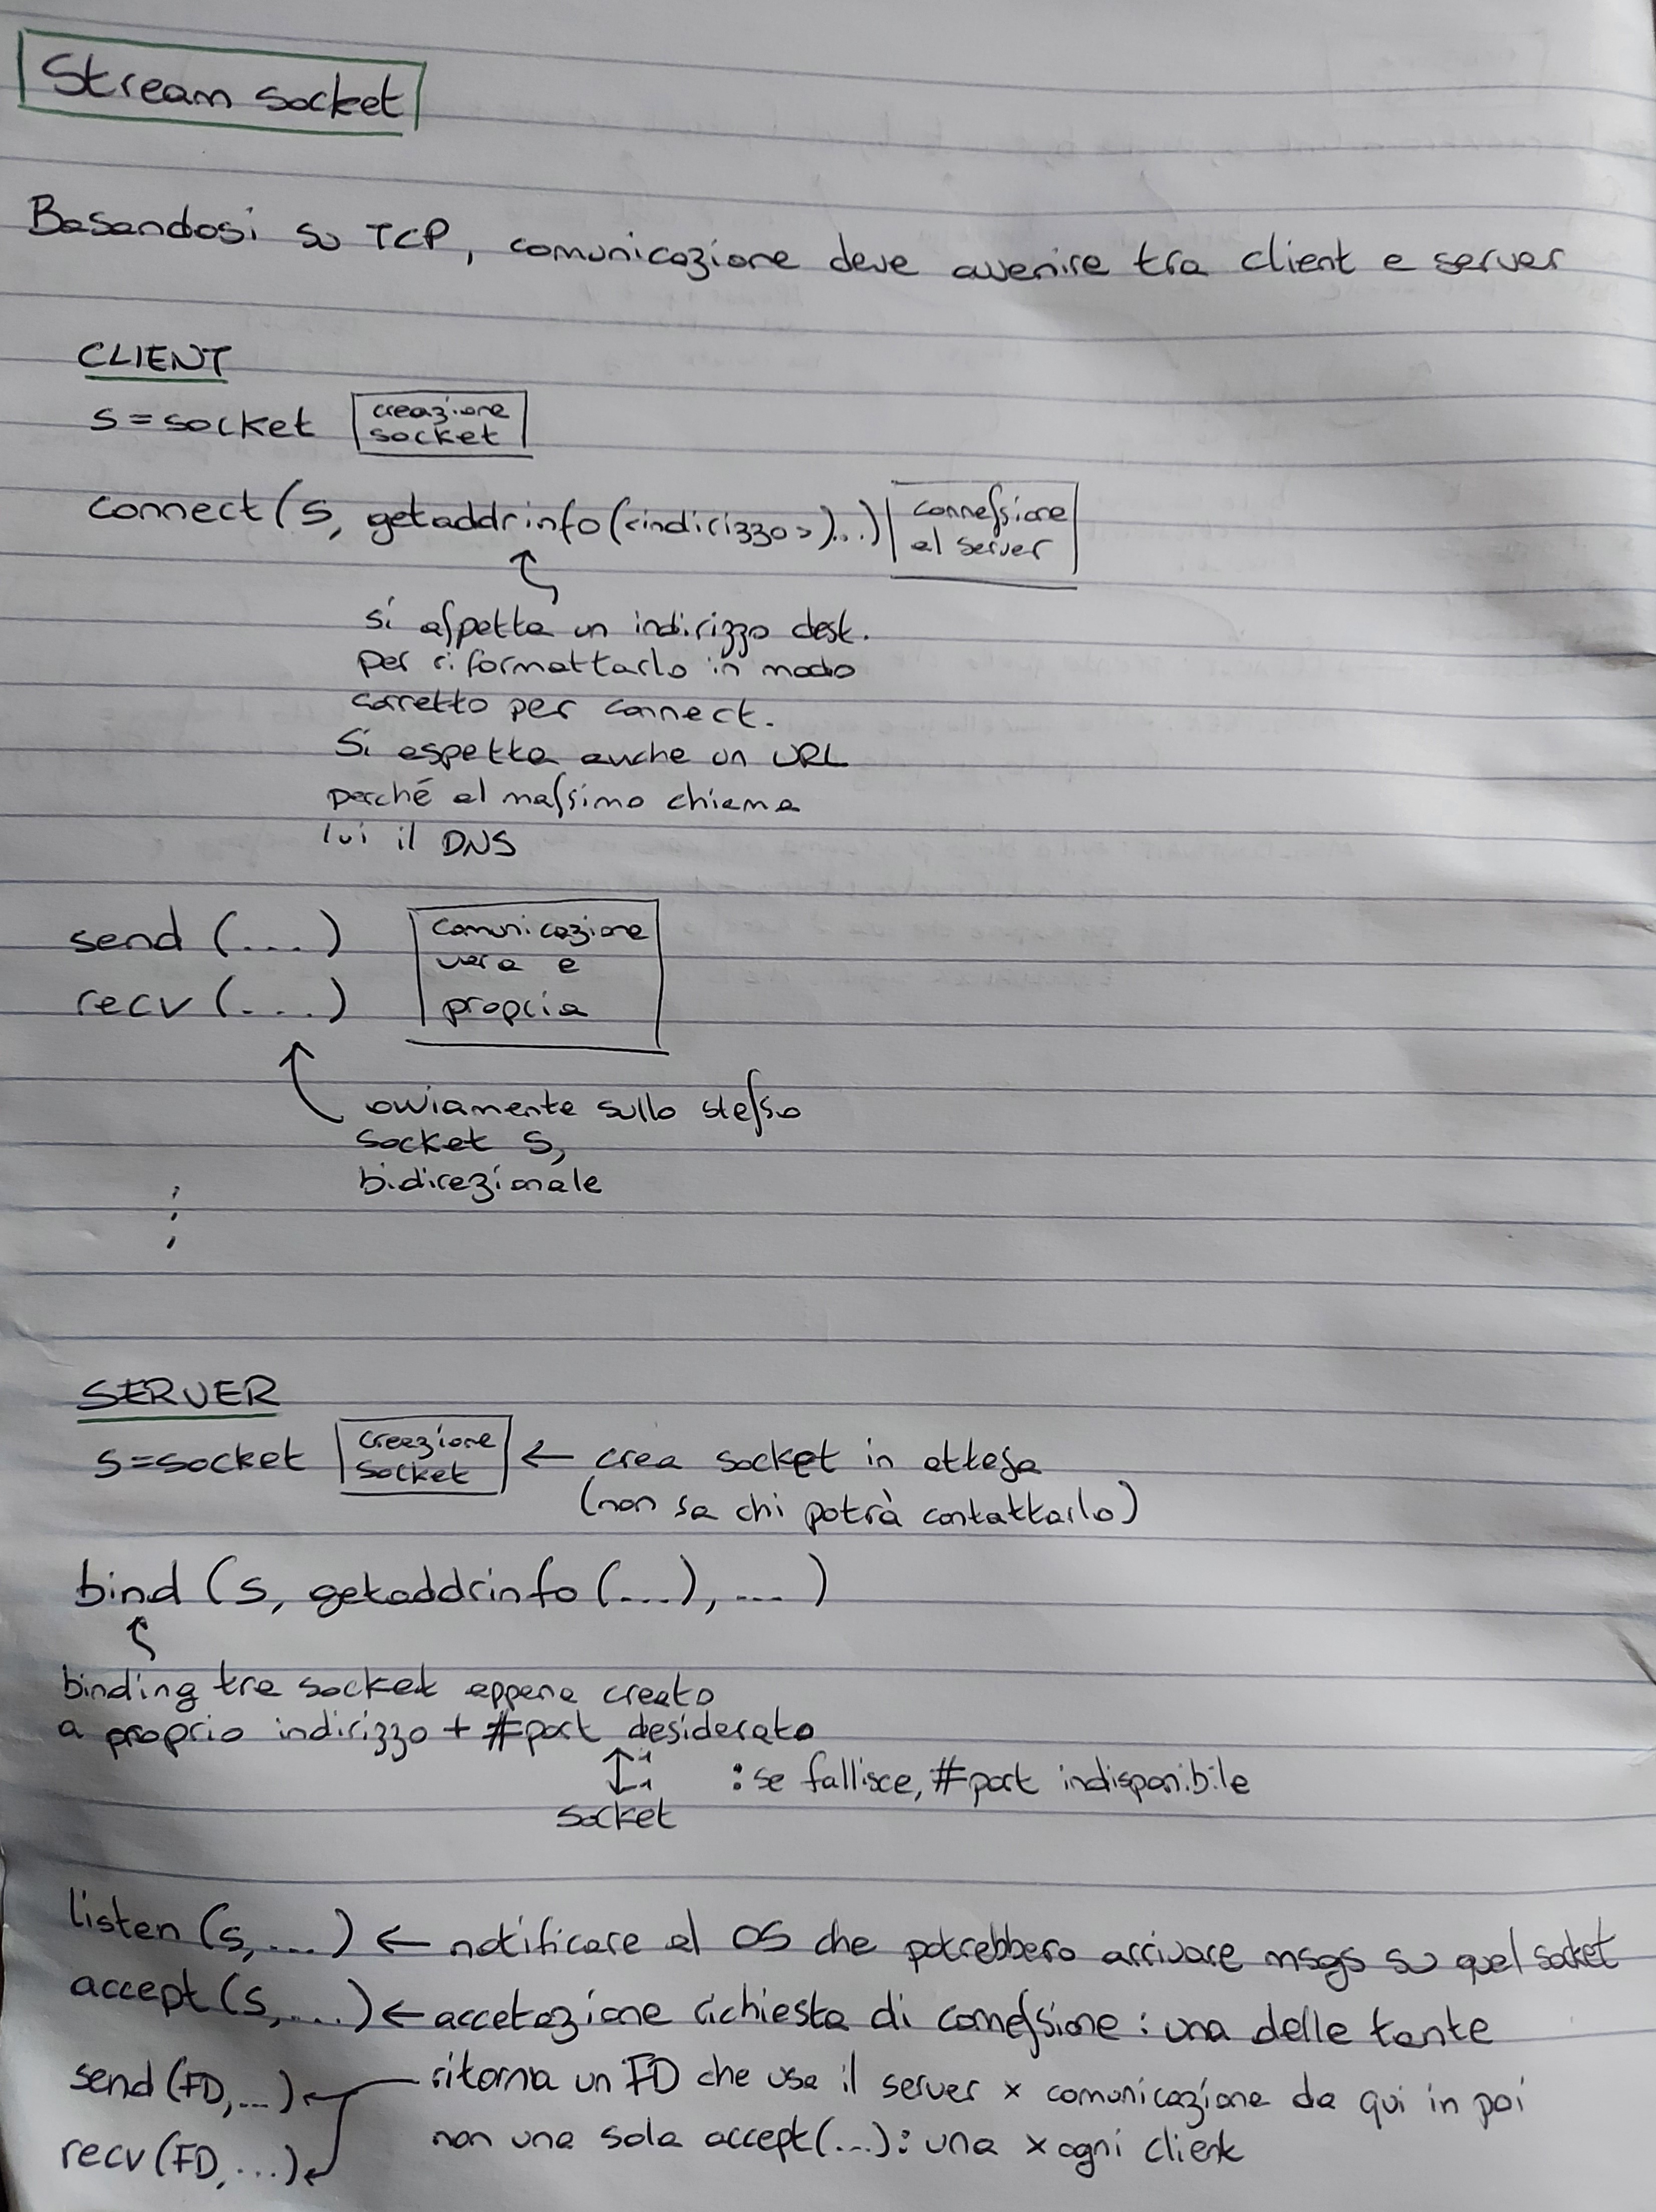 Stream socket
Basandosi su TCP, comunicazione deve avvenire tra client e server
CLIENT
s=socket creazione socket
connect(s, getaddrinfo(<indirizzo>)...) connessione al server
si aspetta un indirizzo dest.
per riformattarlo in modo
corretto per connect.
Si aspetta anche un URL
perché al massimo chiama
lui il DNS
send (...) comunicazione
vera e
recv (...) propria
ovviamente sullo stesso
socket s,
bidirezionale
⋮
SERVER
s=socket creazione socket ← crea socket in attesa
(non sa chi potrà contattarlo)
bind (s, getaddrinfo (...), ...)
binding tra socket appena creato
a proprio indirizzo + #port desiderato
1
1 : se fallisce, #port indisponibile
socket
listen (s, ...) ← notificare al OS che potrebbero arrivare msgs su quel socket
accept (s, ...) ← accetazione richiesta di connessione: una delle tante
send (FD, ...) ritorna un FD che usa il server x comunicazione da qui in poi
recv (FD, ...) non una sola accept(...): una x ogni client